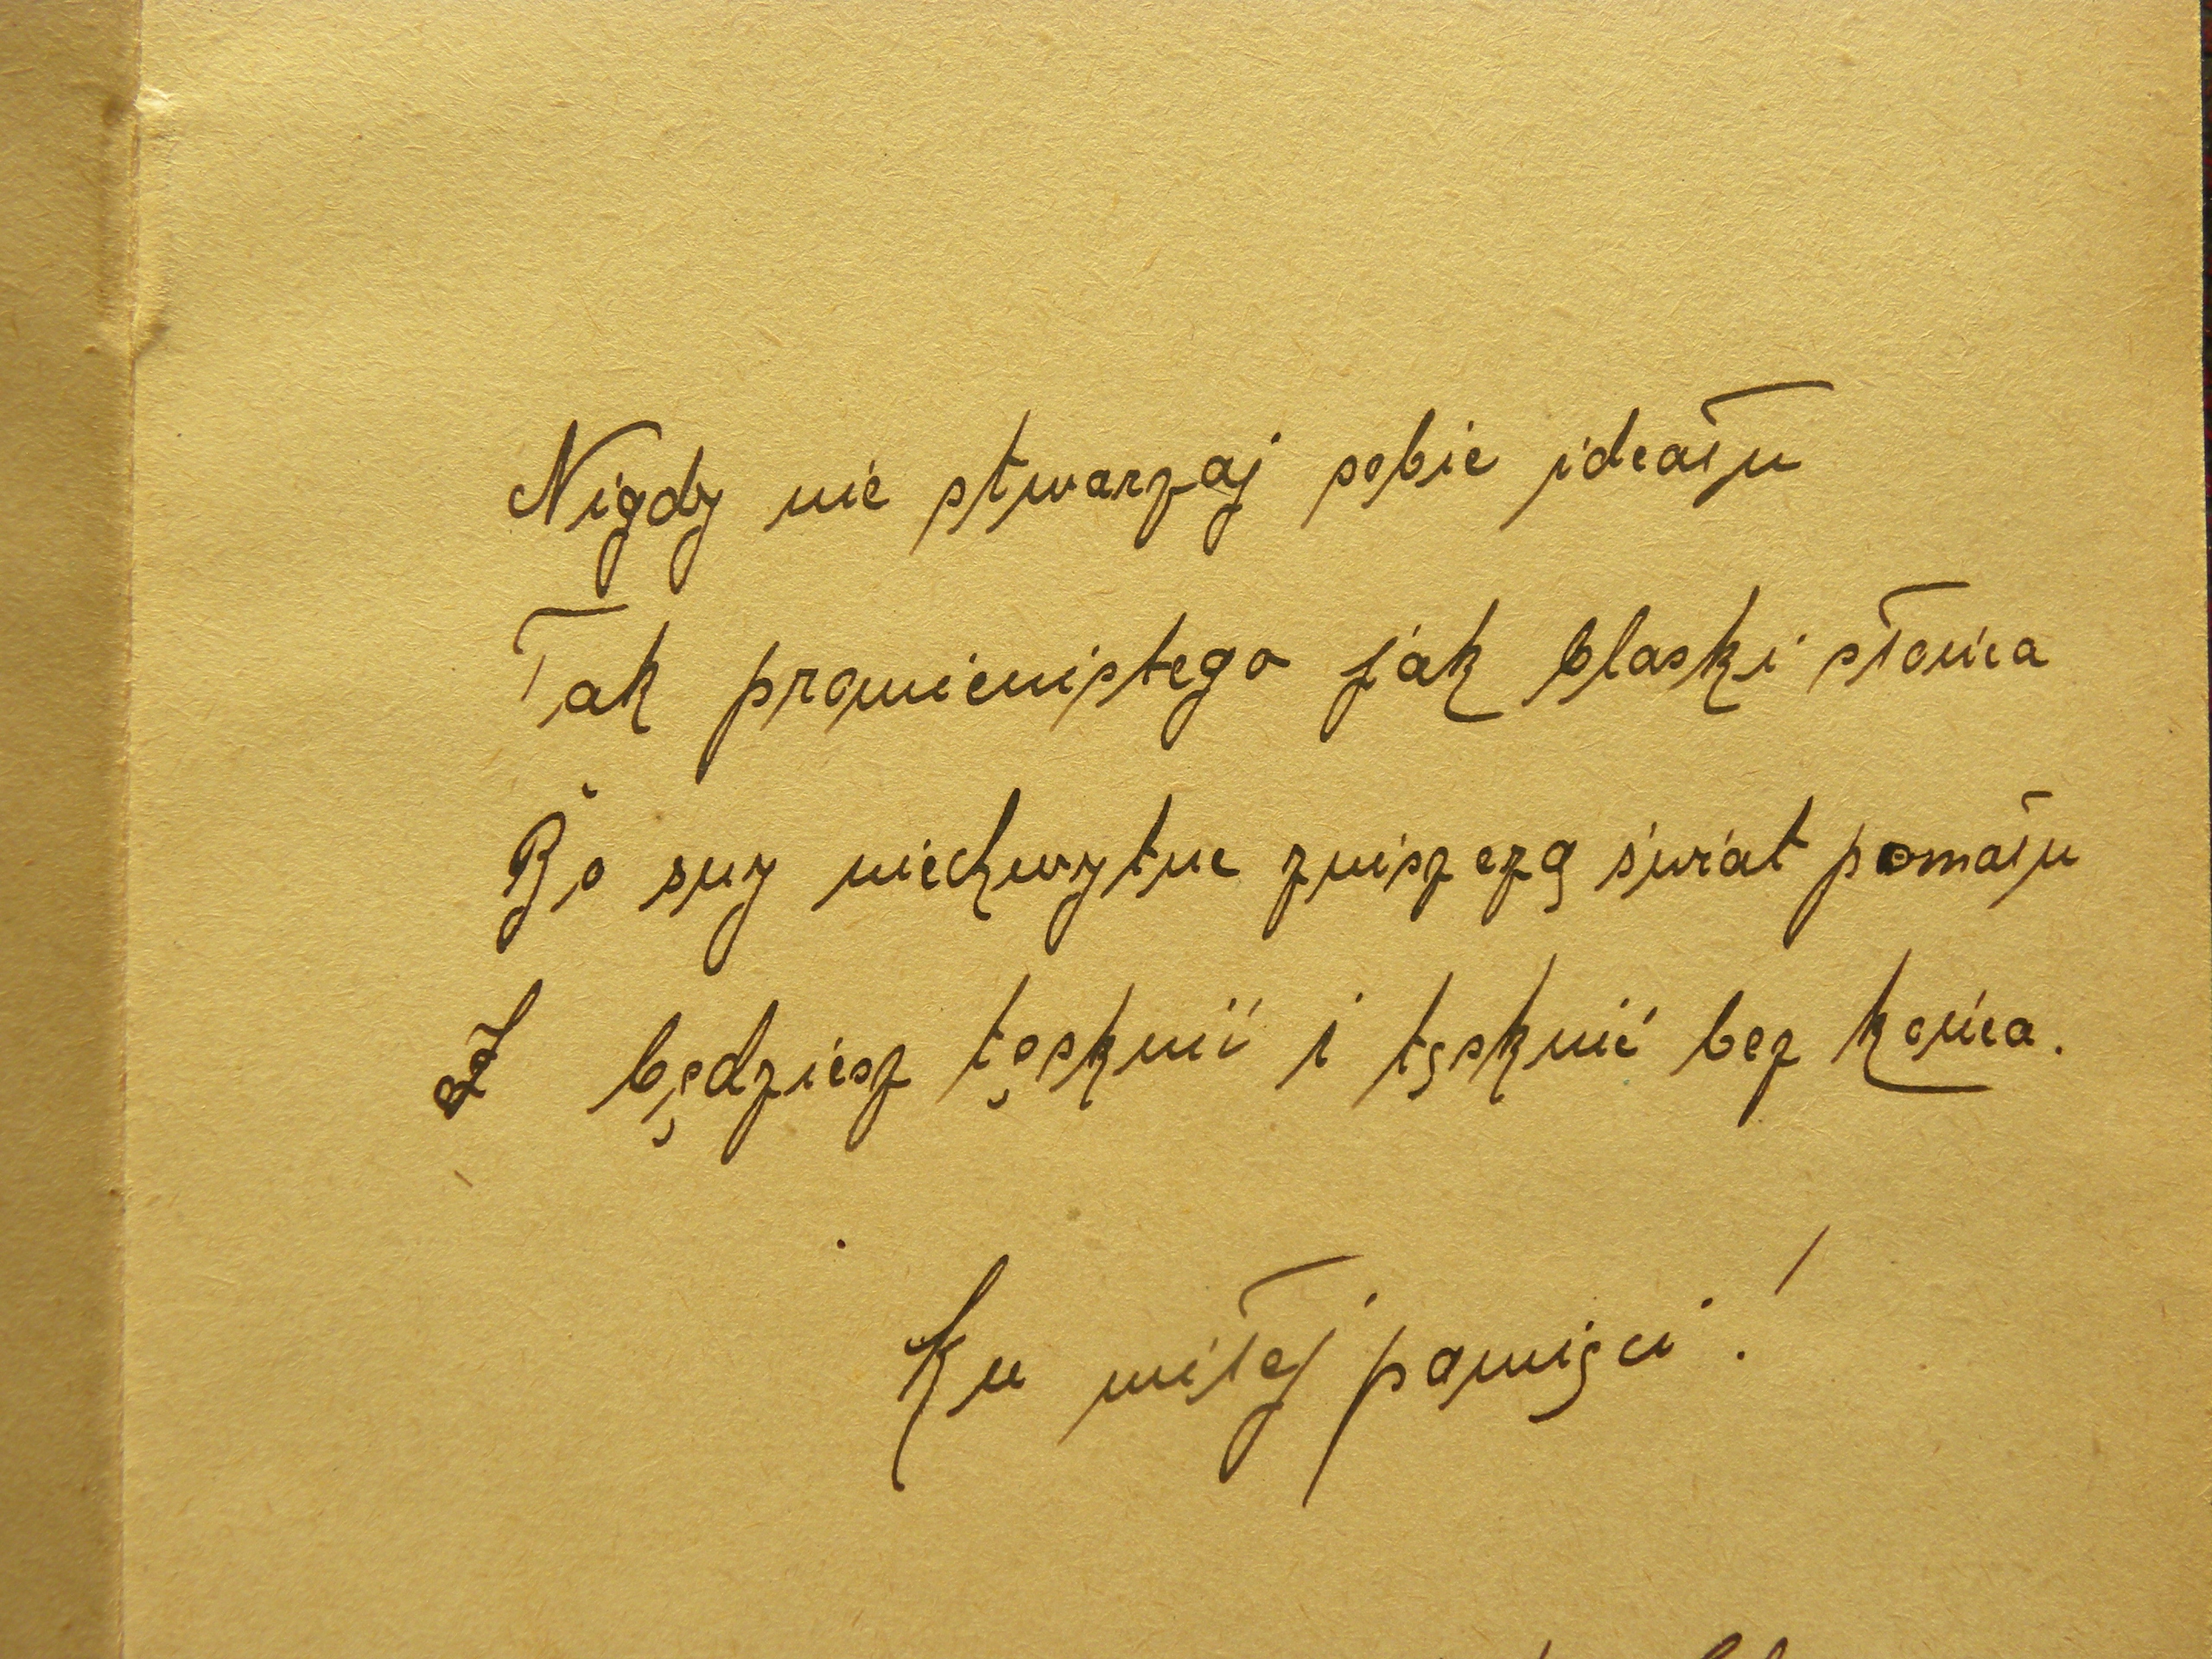 Nigdy nie stwarzaj sobie ideału
Tak promienistego jak blaski słońca
Bo sny niechwytne zniszczą świat pomału
I będziesz tęsknić i tęsknić bez końca.
Ku miłej pamięci!